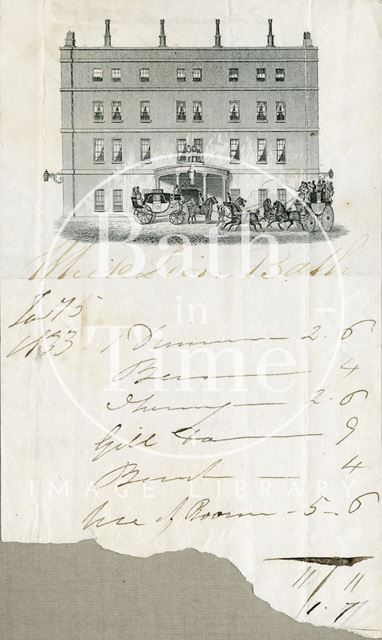 White Lion Bath
Bath in Time
IMAGE LIBRARY
1833 1 Dinner 2 . 6
Beer 4
Sherry 2 . 6
Gill 9
4
Use of Room - 5 - 6
11 / 11
1 . 7